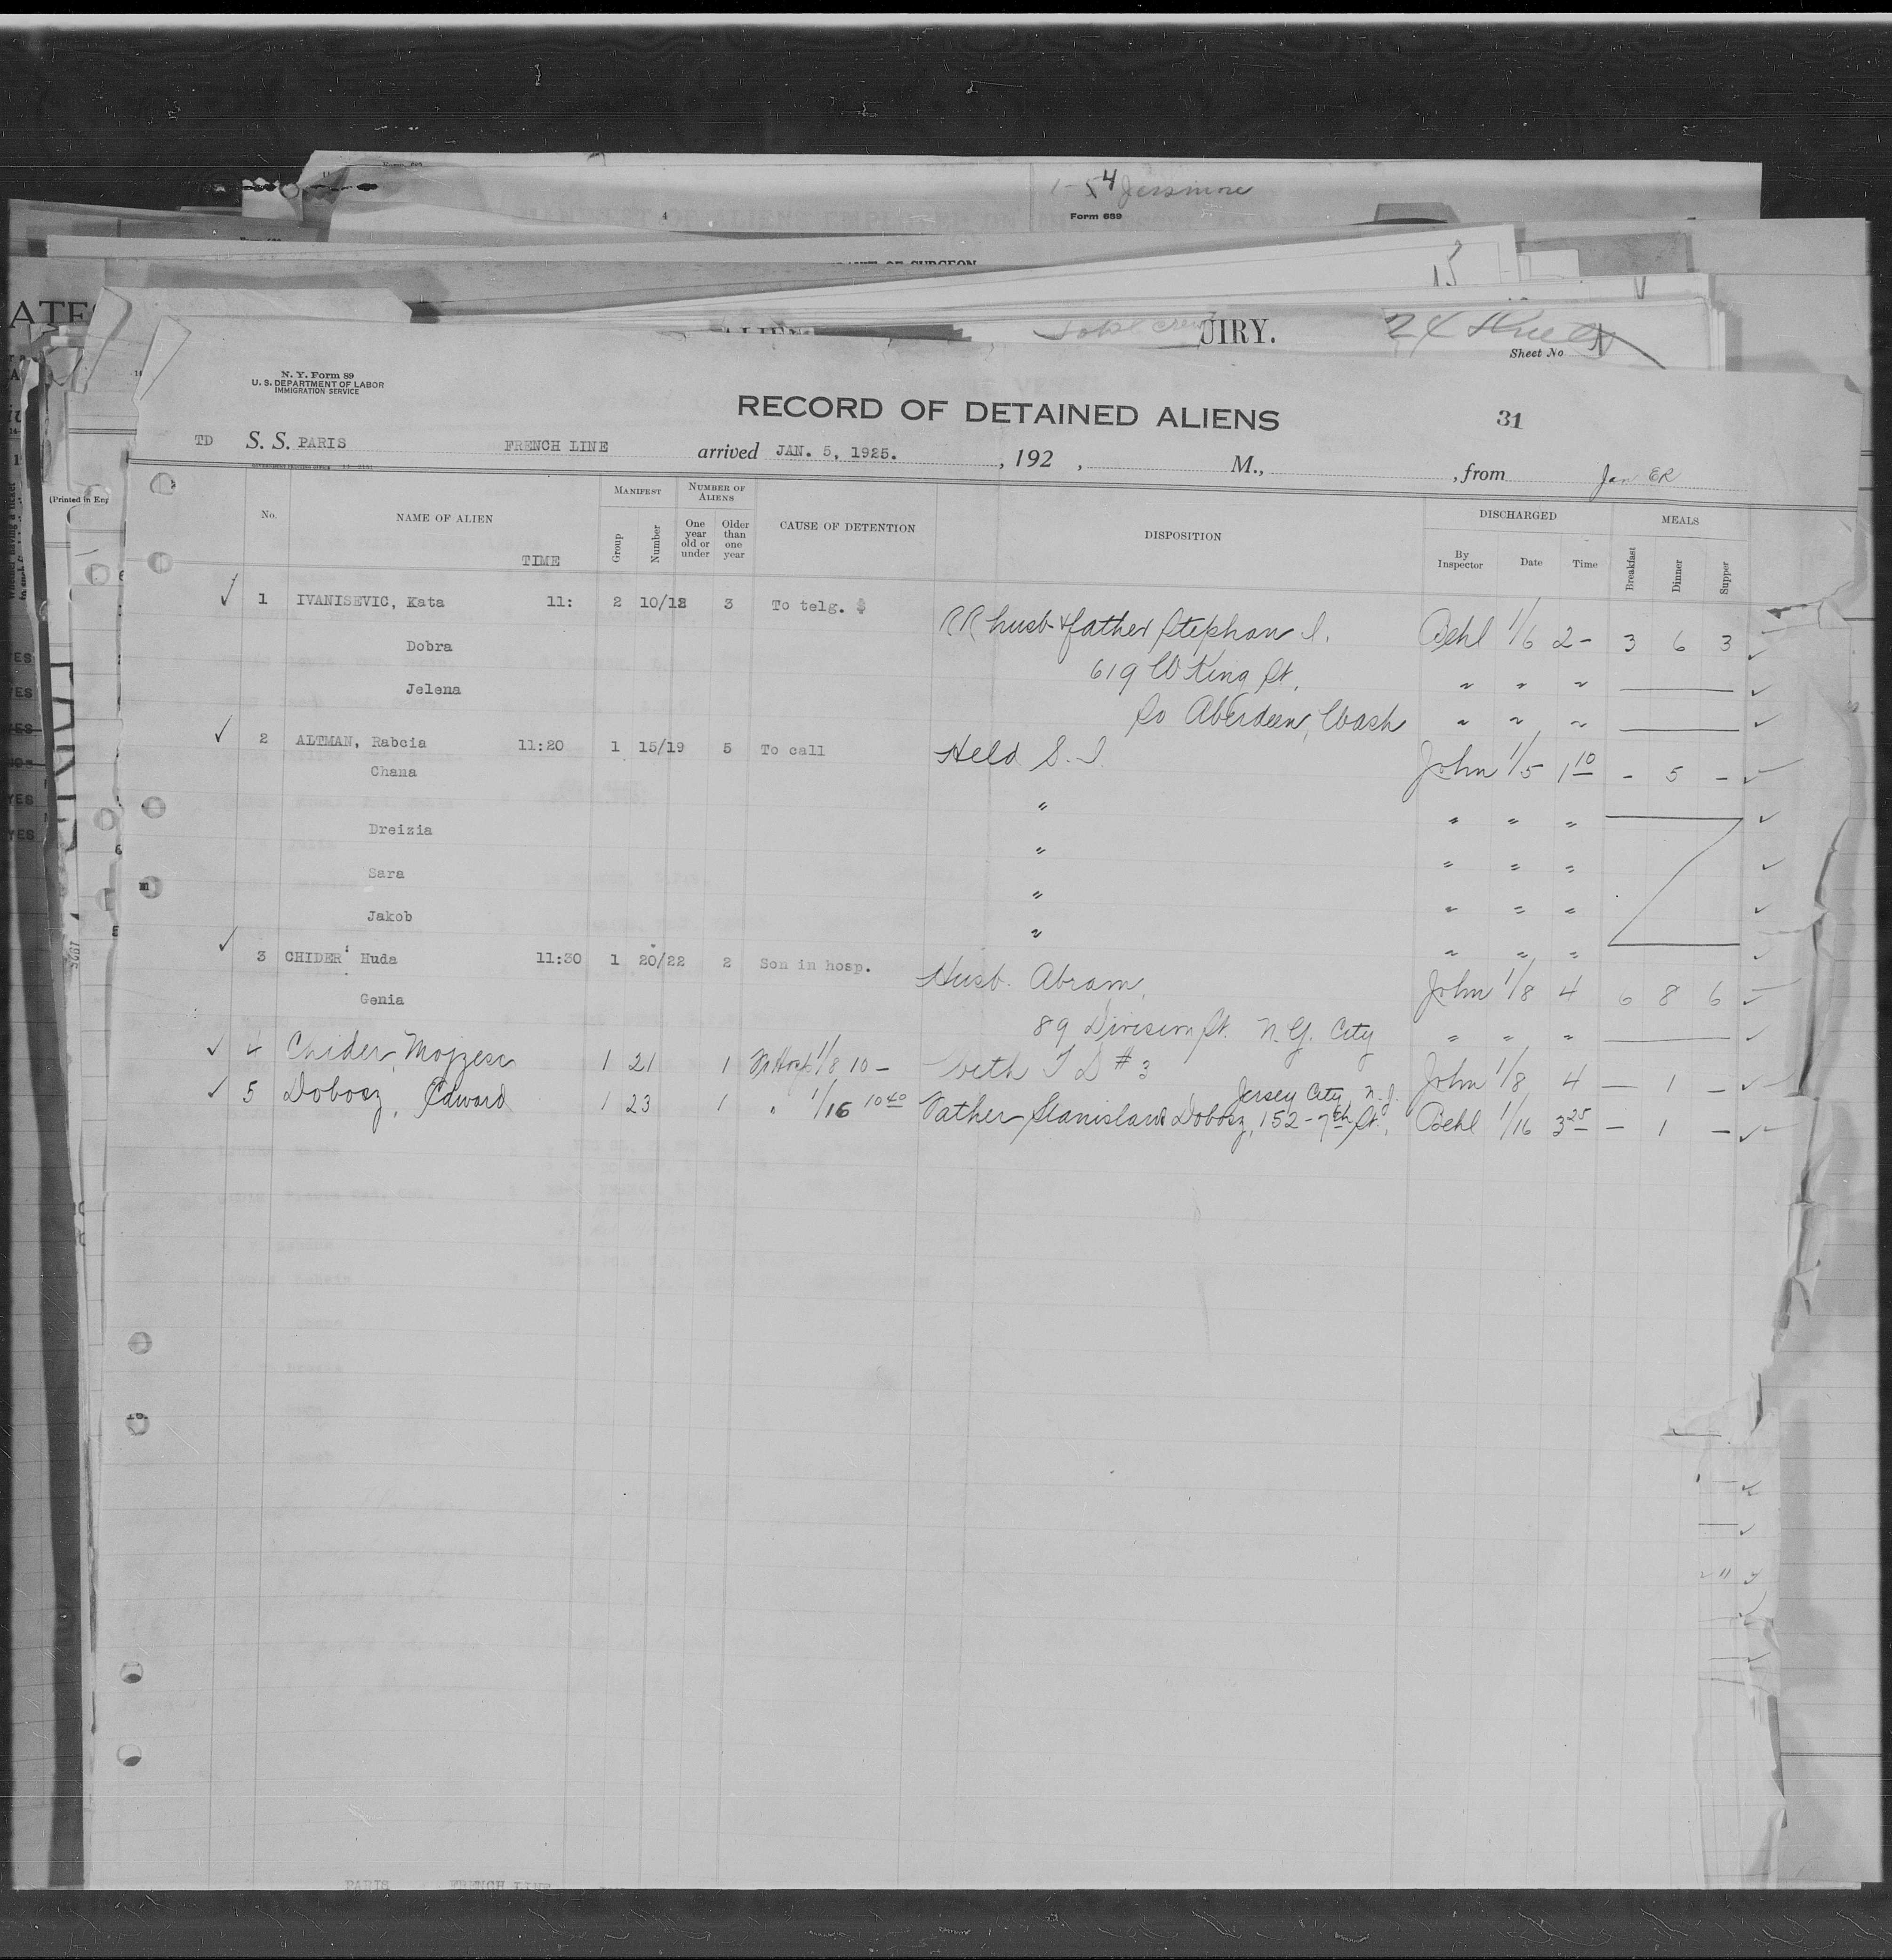 1-54 Jessmore
4
Form 689
OF SURGEON
15
ATES
UIRY.
Sheet No
N. Y. Form 89
U. S. DEPARTMENT OF LABOR
IMMIGRATION SERVICE
RECORD OF DETAINED ALIENS
31
TD S. S. PARIS FRENCH LINE arrived JAN. 5, 1925. , 192 , M., , from Jan ER
(Printed in Eng
No. NAME OF ALIEN TIME MANIFEST Group Number NUMBER OF ALIENS One year old or under Older than one year CAUSE OF DETENTION DISPOSITION DISCHARGED By Inspector Date Time MEALS Breakfast Dinner Supper
✓ 1 IVANISEVIC, Kata 11: 2 10/12 3 To telg. $ RR husb & father Stephan I. Behl 1/6 2- 3 6 3 ✓
Dobra 619 W King St. " " " ✓
Jelena So Aberdeen, Wash " " " ✓
✓ 2 ALTMAN, Rabcia 11:20 1 15/19 5 To call Held S. I. John 1/5 1 10 - 5 - ✓
Chana " " " " ✓
Dreizia " " " " ✓
Sara " " " " ✓
Jakob " " " " ✓
✓ 3 CHIDER' Huda 11:30 1 20/22 2 Son in hosp. Husb. Abram, John 1/8 4 6 8 6 ✓
Genia 89 Division St. N.Y. City " " " ✓
✓ 4 Chider, Mojzesz 1 21 1 Hosp. 1/8 10 - with T D # 3 John 1/8 4 — 1 - ✓
Jersey City, N.J.
✓ 5 Dobosz, Edward 1 23 1 " 1/16 10 40 Father Stanislaw Dobosz, 152-7th St., Behl 1/16 3 25 — 1 — ✓
PARIS FRENCH LINE